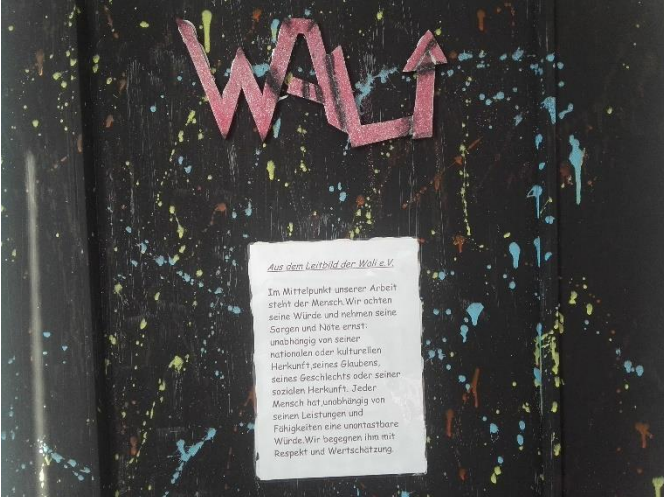 WALi
Aus dem Leitbild der Wali e.V.
Im Mittelpunkt unserer Arbeit
steht der Mensch.Wir achten
seine Würde und nehmen seine
Sorgen und Nöte ernst:
unabhängig von seiner
nationalen oder kulturellen
Herkunft,seines Glaubens,
seines Geschlechts oder seiner
sozialen Herkunft. Jeder
Mensch hat,unabhängig von
seinen Leistungen und
Fähigkeiten eine unantastbare
Würde.Wir begegnen ihm mit
Respekt und Wertschätzung.